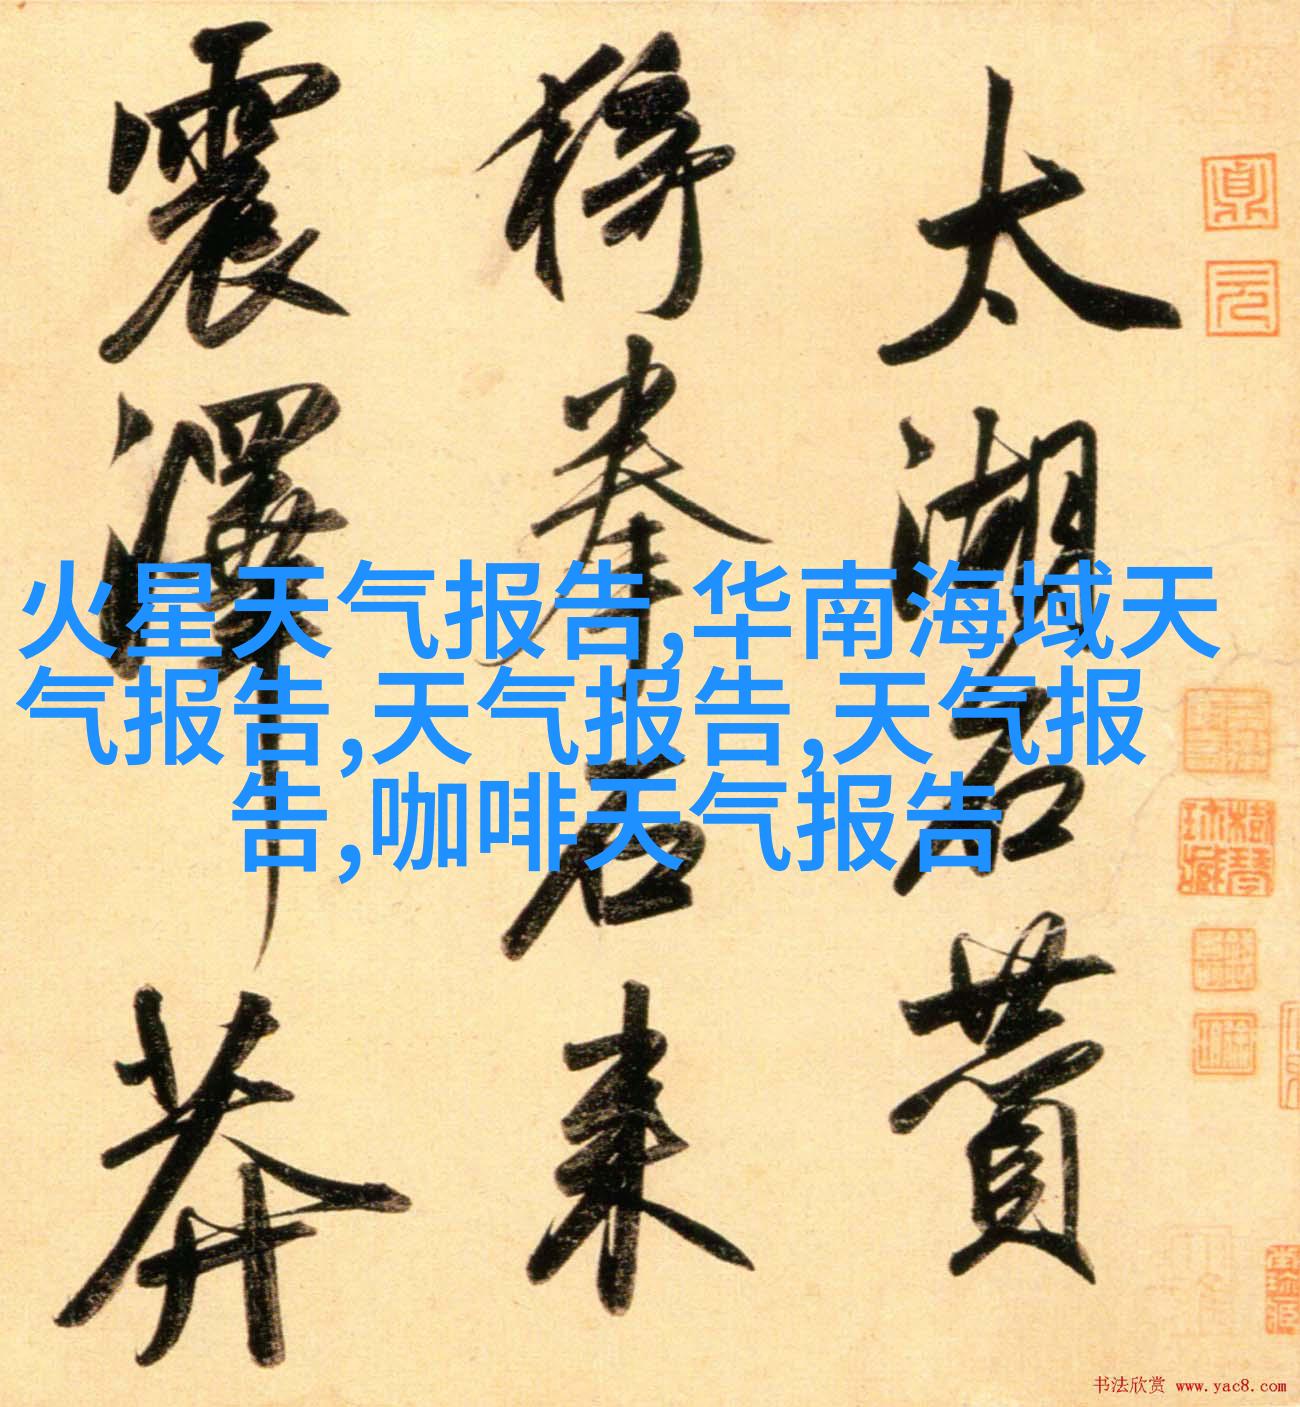 太湖石贊
猗拳石来
震澤莽
火星天气报告,华南海域天
气报告,天气报告,天气报
告,咖啡天气报告
真
元
书法欣赏 www.yac8.com